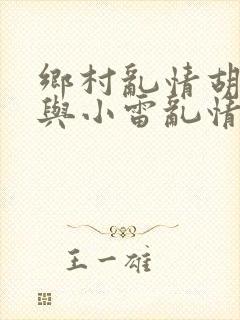 鄉村亂情胡
與小雷亂情
王一雄